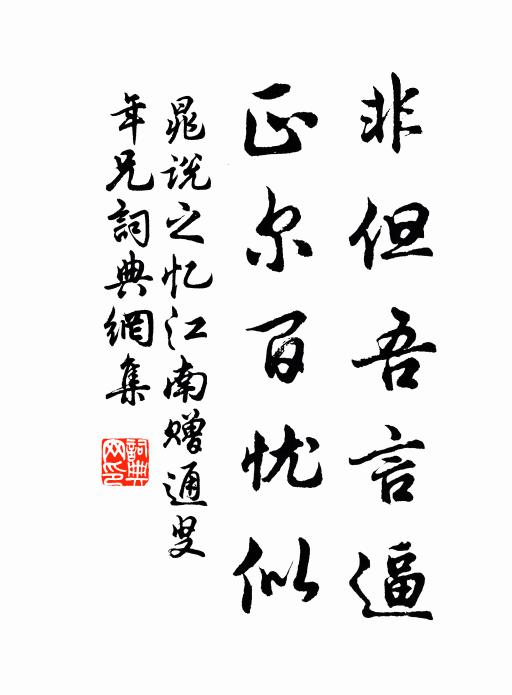 非但吾言逼
正尔百忧似
晁说之忆江南赠通叟
年兄詞典網集
詞典
网印